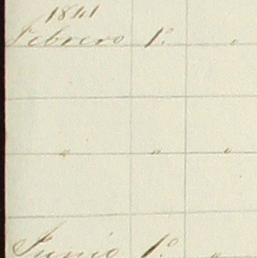 1841
Febrero 1º "
" " "
Junio 1º "